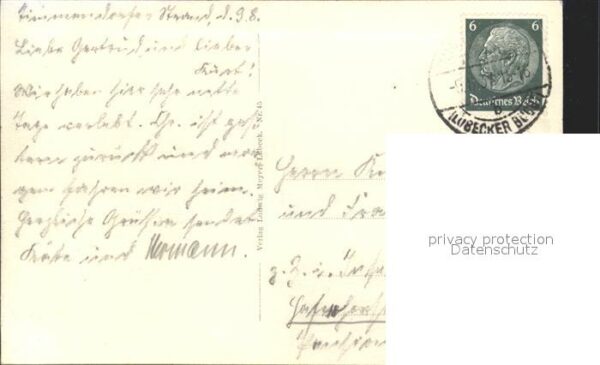 Timmendorfer Strand, d. 9.8.
Liebe Gertrud und lieber
Kurt!
Wir haben hier sehr nette
Tage verlebt. Chr. ist ges-
tern zurück und mor-
gen fahren wir heim.
Herzliche Grüße sendet
Käte und Hermann.
Verlag Ludwig Meyer Lübeck. Nr. 45
6 6
Deutsches Reich
(LÜBECKER BU
Herrn
und Frau
z. Z.
Pension
privacy protection
Datenschutz